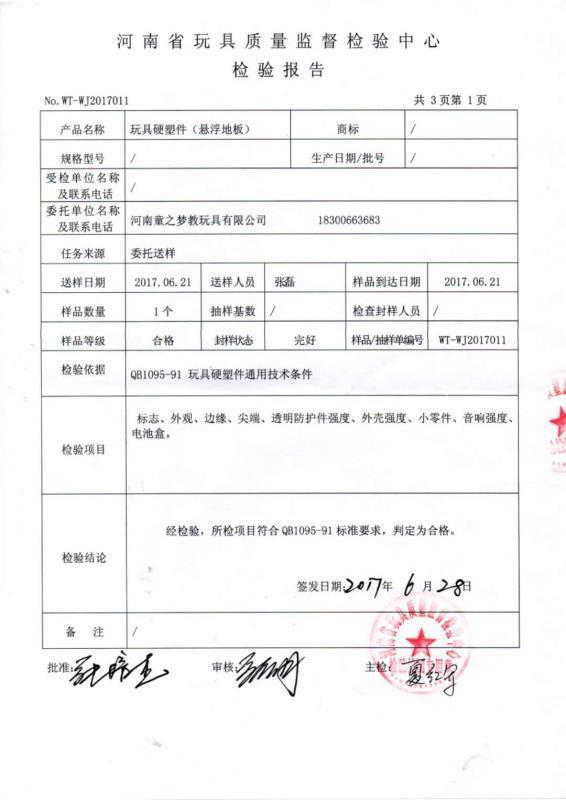 河南省玩具质量监督检验中心
检验报告
No.WT-WJ2017011 共 3 页第 1 页
产品名称 玩具硬塑件（悬浮地板） 商标 /
规格型号 / 生产日期/批号 /
受检单位名称
及联系电话 /
委托单位名称
及联系电话 河南童之梦教玩具有限公司 18300663683
任务来源 委托送样
送样日期 2017.06.21 送样人员 张磊 样品到达日期 2017.06.21
样品数量 1个 抽样基数 / 检查封样人员 /
样品等级 合格 封样状态 完好 样品/抽样单编号 WT-WJ2017011
检验依据 QB1095-91 玩具硬塑件通用技术条件
检验项目 标志、外观、边缘、尖端、透明防护件强度、外壳强度、小零件、音响强度、
电池盒。
检验结论 经检验，所检项目符合QB1095-91标准要求，判定为合格。
签发日期:2017年 6 月 28日
备 注 /
批准: 审核: 主检: